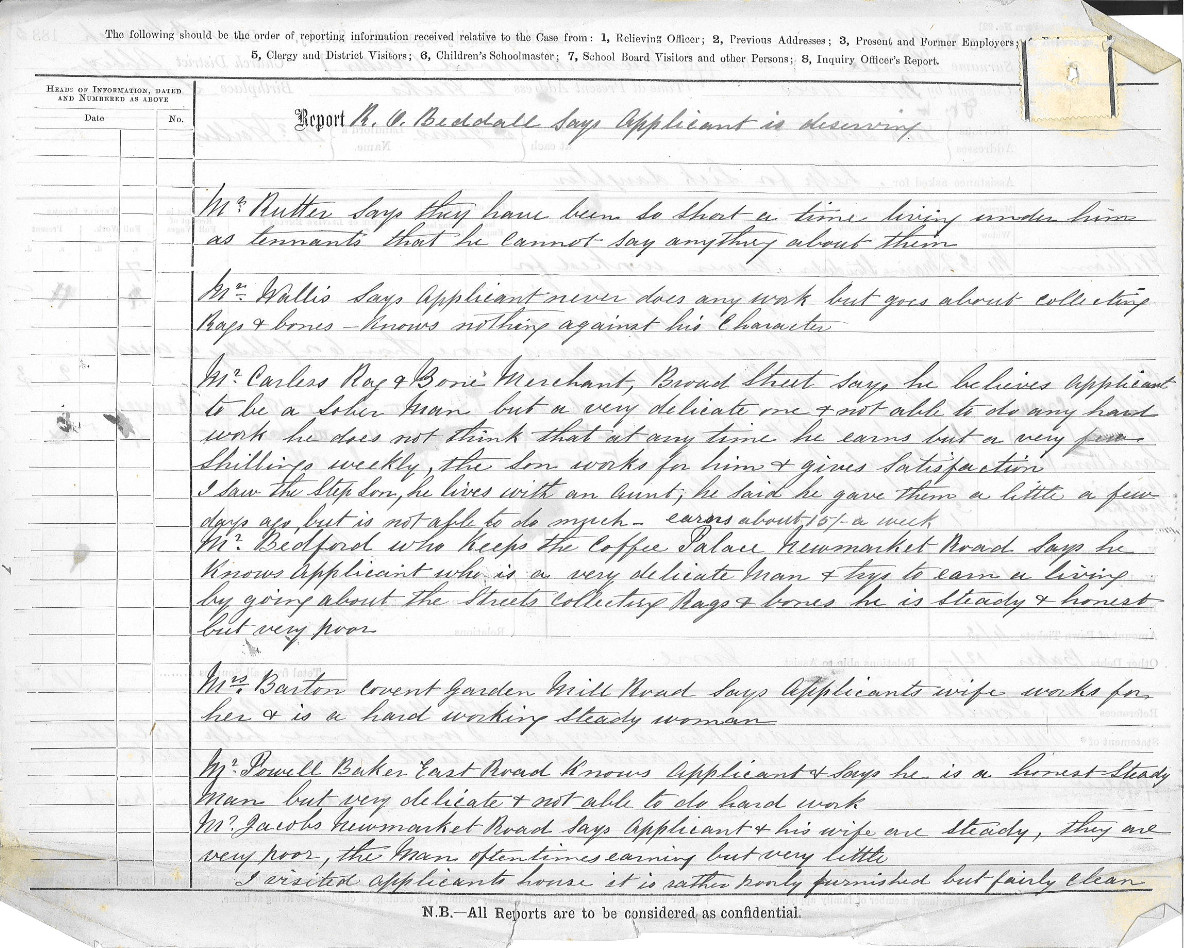 The following should be the order of reporting information received relative to the Case from: 1, Relieving Officer; 2, Previous Addresses; 3, Present and Former Employers;
5, Clergy and District Visitors; 6, Children's Schoolmaster; 7, School Board Visitors and other Persons; 8, Inquiry Officer's Report.
HEADS OF INFORMATION, DATED
AND NUMBERED AS ABOVE
Date No.
Report R. O. Beddall says Applicant is deserving
Mr. Rutter says they have been so short a time living under him
as tennants that he cannot say anything about them
Mr. Wallis says Applicant never does any work but goes about collecting
Rags & bones - Knows nothing against his Character
Mr. Carless Rag & Bone Merchant, Broad Street says he believes Applicant
to be a sober Man but a very delicate one & not able to do any hard
work he does not think that at any time he earns but a very few
Shillings weekly, the son works for him & gives satisfaction
I saw the Step Son, he lives with an Aunt, he said he gave them a little a few
days ago, but is not able to do much - earns about 15/- a week
Mr. Bedford who keeps the Coffee Palace Newmarket Road says he
Knows Applicant who is a very delicate Man & trys to earn a living
by going about the Streets collecting Rags & bones he is steady & honest
but very poor
Mrs. Barton Covent Garden Mill Road says Applicants wife works for
her & is a hard working steady woman
Mr. Powell Baker East Road Knows Applicant & says he is a honest steady
Man but very delicate & not able to do hard work
Mr. Jacobs Newmarket Road says Applicant & his wife are steady, they are
very poor, the Man oftentimes earning but very little
I visited Applicants house it is rather poorly furnished but fairly clean
N.B.—All Reports are to be considered as confidential.